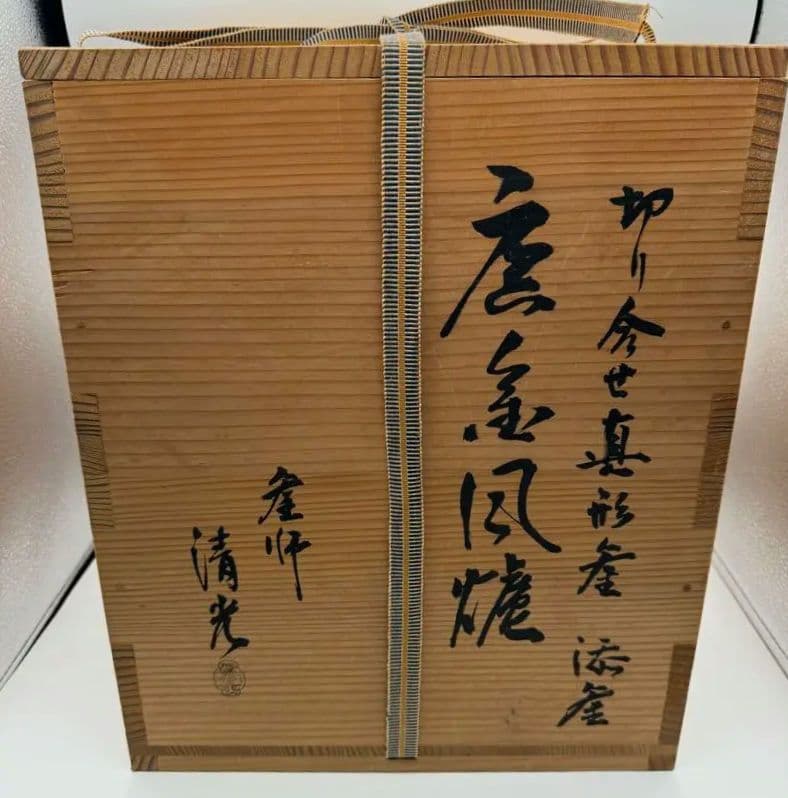 切り合せ真形釜 添釜
唐金風炉
釜師
清光